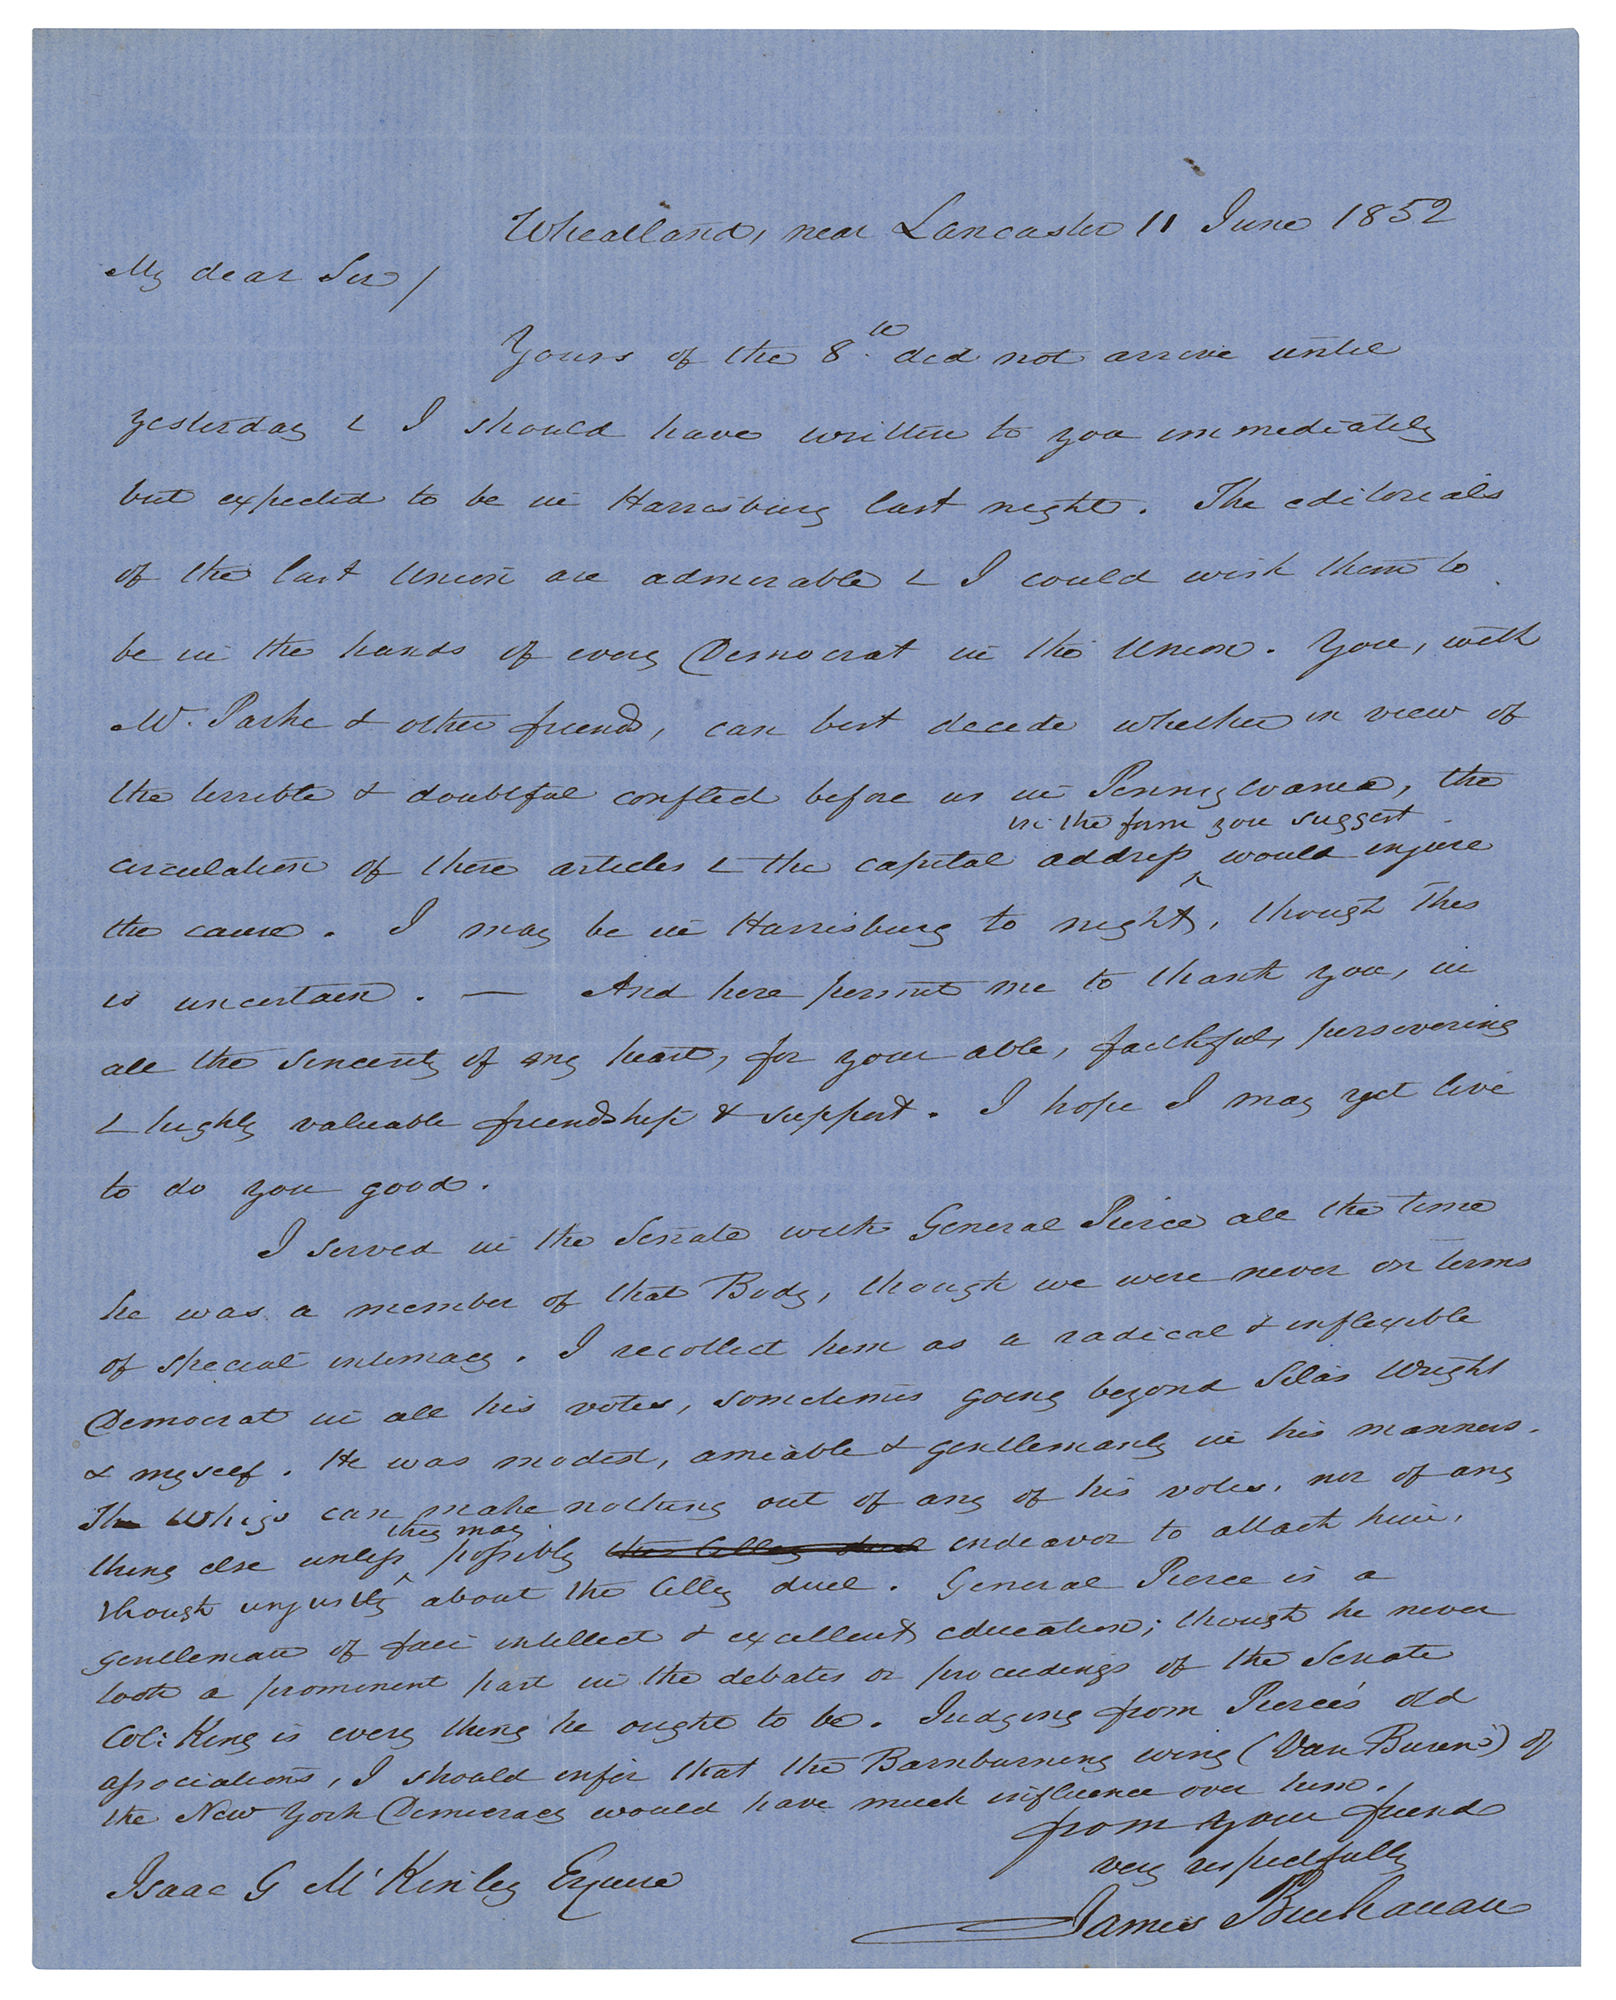 Wheatland, near Lancaster 11 June 1852
My dear Sir/
Yours of the 8th did not arrive until
yesterday & I should have written to you immediately
but expected to be in Harrisburg last night. The editorials
of the last Union are admirable & I could wish them to
be in the hands of every Democrat in the Union. You, with
Mr. Parke & other friends, can best decide whether in view of
the terrible & doubtful conflict before us in Pennsylvania, the
in the form you suggest
circulation of these articles & the capital address ^ would injure
the cause. I may be in Harrisburg to night, though this
is uncertain. — And here permit me to thank you, in
all the sincerity of my heart, for your able, faithful, persevering
& highly valuable friendship & support. I hope I may yet live
to do you good.
I served in the Senate with General Pierce all the time
he was a member of that Body, though we were never on terms
of special intimacy. I recollect him as a radical & inflexible
Democrat in all his votes, sometimes going beyond Silas Wright
& myself. He was modest, amiable & gentlemanly in his manners.
The Whigs can make nothing out of any of his votes, nor of any
they may
thing else unless ^ possibly the Cilley duel endeavor to attack him,
though unjustly about the Cilley duel. General Pierce is a
gentleman of fair intellect & excellent education; though he never
took a prominent part in the debates or proceedings of the Senate
Col: King is every thing he ought to be. Judging from Pierce's old
associations, I should infer that the Barnburning wing (Van Buren's) of
the New York Democracy would have much influence over him.
from your friend
very respectfully
Isaac G McKinley Esquire
James Buchanan